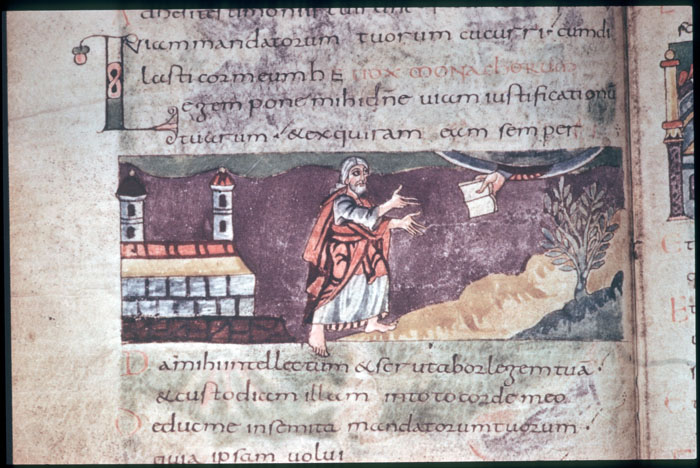 Uiam mandatorum tuorum cucurri· cum di
lasti cor meum he uox monachorum
Legem pone mihi dñe uiam iustificationū
tuarum· & exquiram eam semper
Da mihi intellectum & scrutabor legem tuā·
& custodiam illam in toto corde meo
Deduc me in semita mandatorum tuorum·
quia ipsam uolui